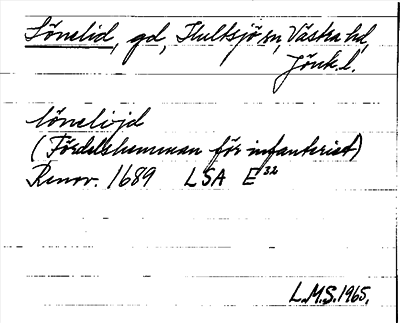 Lönelid, gd, Hultsjö sn, Västra hd,
Jönk. l.
lönelijd
(Fördelshemman för infanteriet)
Renov. 1689 LSA E 32
L.M.S. 1965.